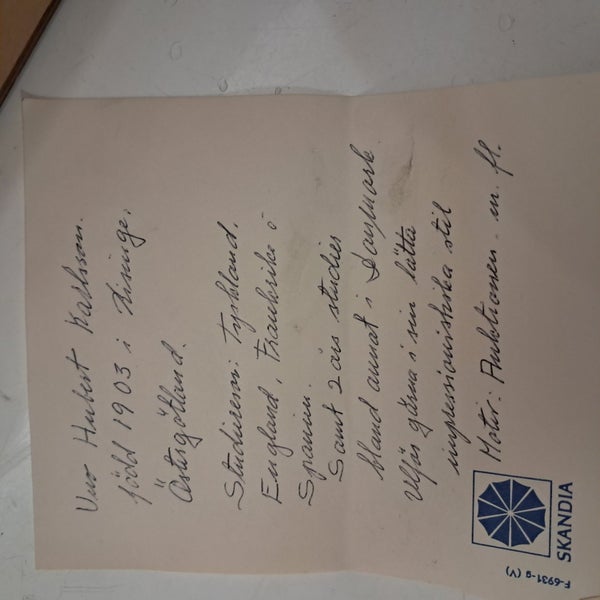 Uno Hubert Karlsson.
född 1903 i Risinge.
Östergötland.
Studieresor: Tyskland,
England, Frankrike o
Spanien.
Samt 2 års studier
bland annat i Danmark.
i sin lätta
impressionistiska stil
Motiv: Auktionen m. fl.
SKANDIA
F-6931-g (V)